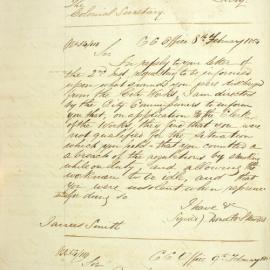 The
Colonial Secretary
C C Office 8th February 1854
Sir
In reply to your letter of
the 2nd Inst requesting to be informed
upon what grounds you were discharged
from the City Works, I am directed
by the City Commissioners to inform
you that, on application to the Clerk
of the Works, they find that you were
not qualified for the situation
which you held - that you committed a
breach of the regulations by smoking
while on duty, and allowing the
workmen to be idle, and that
you were insolent when reprimanded
for doing so
I have &c
(Signed)
James Smith
C C Office 9th February
Sir